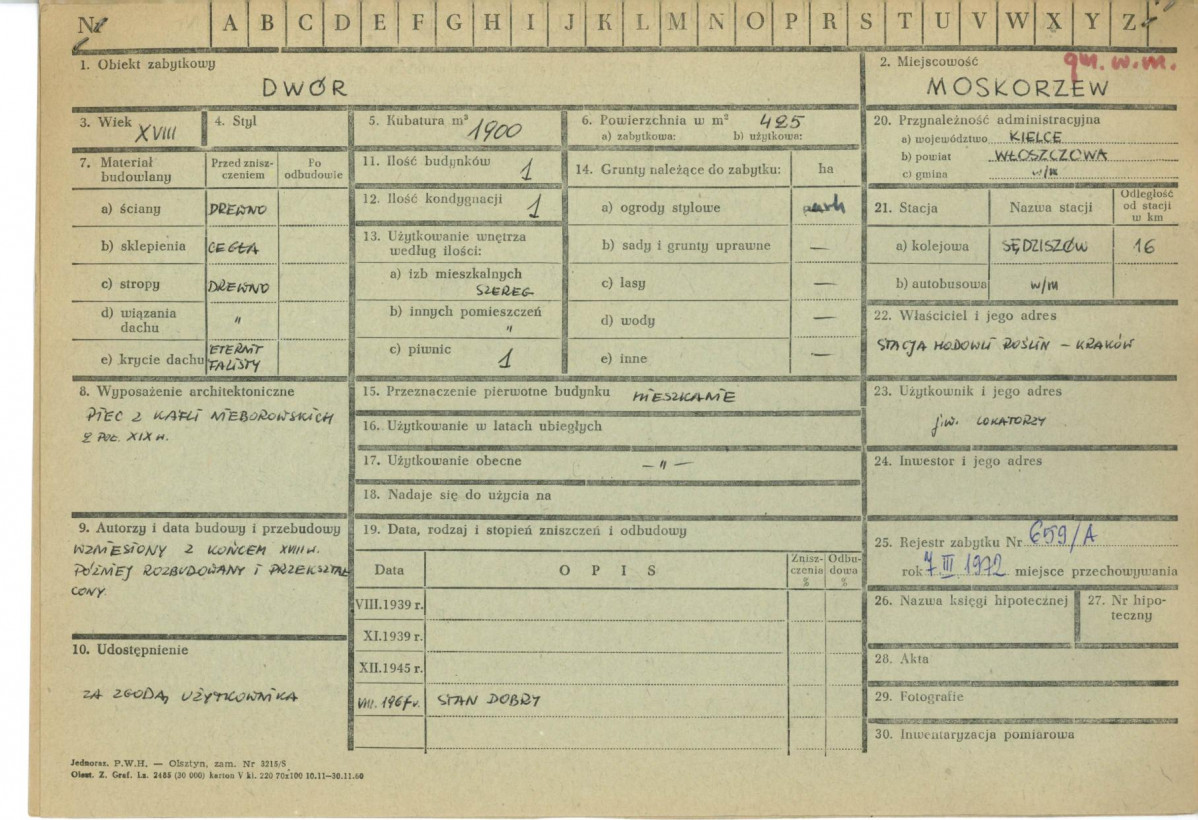 Nr A B C D E F G H I J K L M N O P R S T U V W X Y Z
1. Obiekt zabytkowy
DWÓR
2. Miejscowość
gm. w.m.
MOSKORZEW
3. Wiek XVIII
4. Styl
5. Kubatura m³ 1900
6. Powierzchnia w m² 425
a) zabytkowa: b) użytkowa:
20. Przynależność administracyjna
a) województwo KIELCE
b) powiat WŁOSZCZOWA
c) gmina w/m
7. Materiał budowlany
Przed zniszczeniem
Po odbudowie
a) ściany DREWNO
b) sklepienia CEGŁA
c) stropy DREWNO
d) wiązania dachu "
e) krycie dachu ETERNIT FALISTY
11. Ilość budynków 1
12. Ilość kondygnacji 1
13. Użytkowanie wnętrza według ilości:
a) izb mieszkalnych
SZEREG
b) innych pomieszczeń
"
c) piwnic 1
14. Grunty należące do zabytku: ha
a) ogrody stylowe park
b) sady i grunty uprawne —
c) lasy —
d) wody —
e) inne —
21. Stacja Nazwa stacji Odległość od stacji w km
a) kolejowa SĘDZISZÓW 16
b) autobusowa w/m
22. Właściciel i jego adres
STACJA HODOWLI ROŚLIN – KRAKÓW
8. Wyposażenie architektoniczne
PIEC Z KAFLI NIEBOROWSKICH
Z POŁ. XIX W.
15. Przeznaczenie pierwotne budynku MIESZKANIE
16. Użytkowanie w latach ubiegłych
17. Użytkowanie obecne — " —
18. Nadaje się do użycia na
23. Użytkownik i jego adres
j.w. LOKATORZY
24. Inwestor i jego adres
9. Autorzy i data budowy i przebudowy
WZNIESIONY Z KOŃCEM XVIII W.
PÓŹNIEJ ROZBUDOWANY I PRZEKSZTAŁ
CONY.
10. Udostępnienie
ZA ZGODĄ UŻYTKOWNIKA
19. Data, rodzaj i stopień zniszczeń i odbudowy
Data O P I S Zniszczenia % Odbudowa %
VIII.1939 r.
XI.1939 r.
XII.1945 r.
VIII. 1967 r. STAN DOBRY
25. Rejestr zabytku Nr 659/A
rok 7 III 1972 miejsce przechowywania
26. Nazwa księgi hipotecznej
27. Nr hipoteczny
28. Akta
29. Fotografie
30. Inwentaryzacja pomiarowa
Jednoraz. P.W.H. — Olsztyn, zam. Nr 3215/S
Olszt. Z. Graf. Lz. 2485 (30 000) karton V kl. 220 70x100 10.11—30.11.60